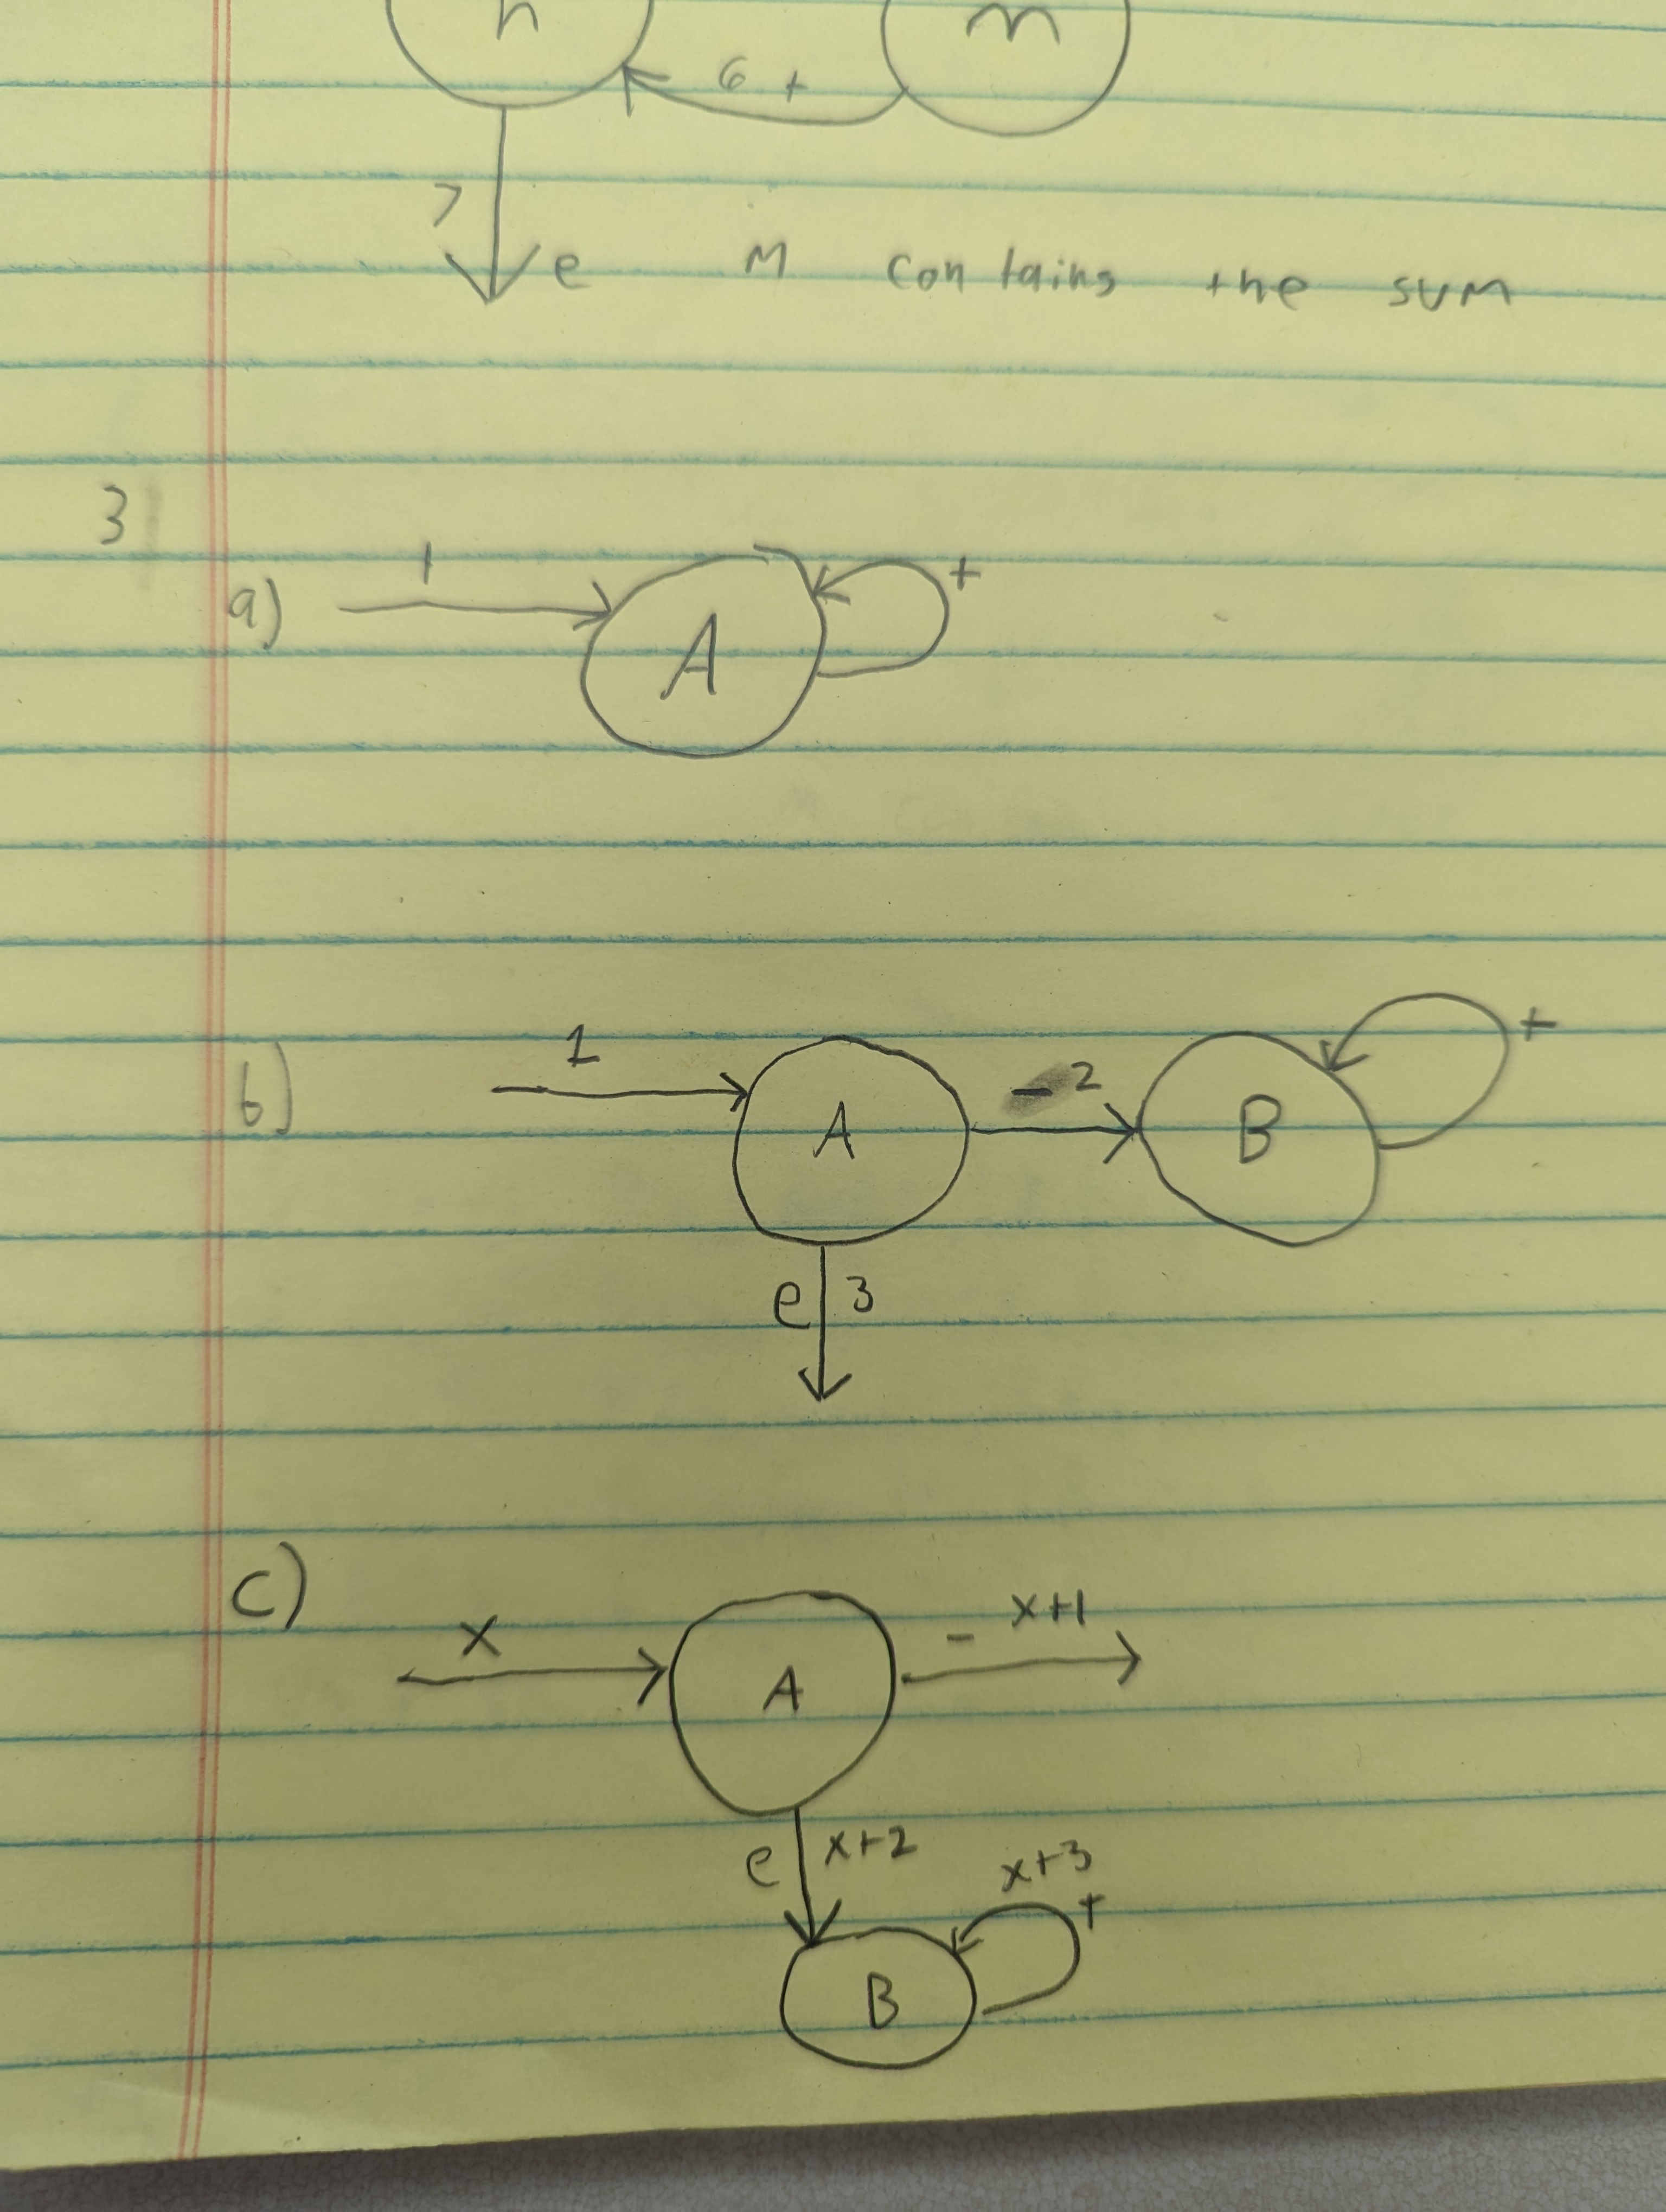 n m
6 +
7
e M contains the sum
3
a) 1 A +
b) 1 A - 2 B +
e 3
c) x A - x+1
e x+2 x+3
B +